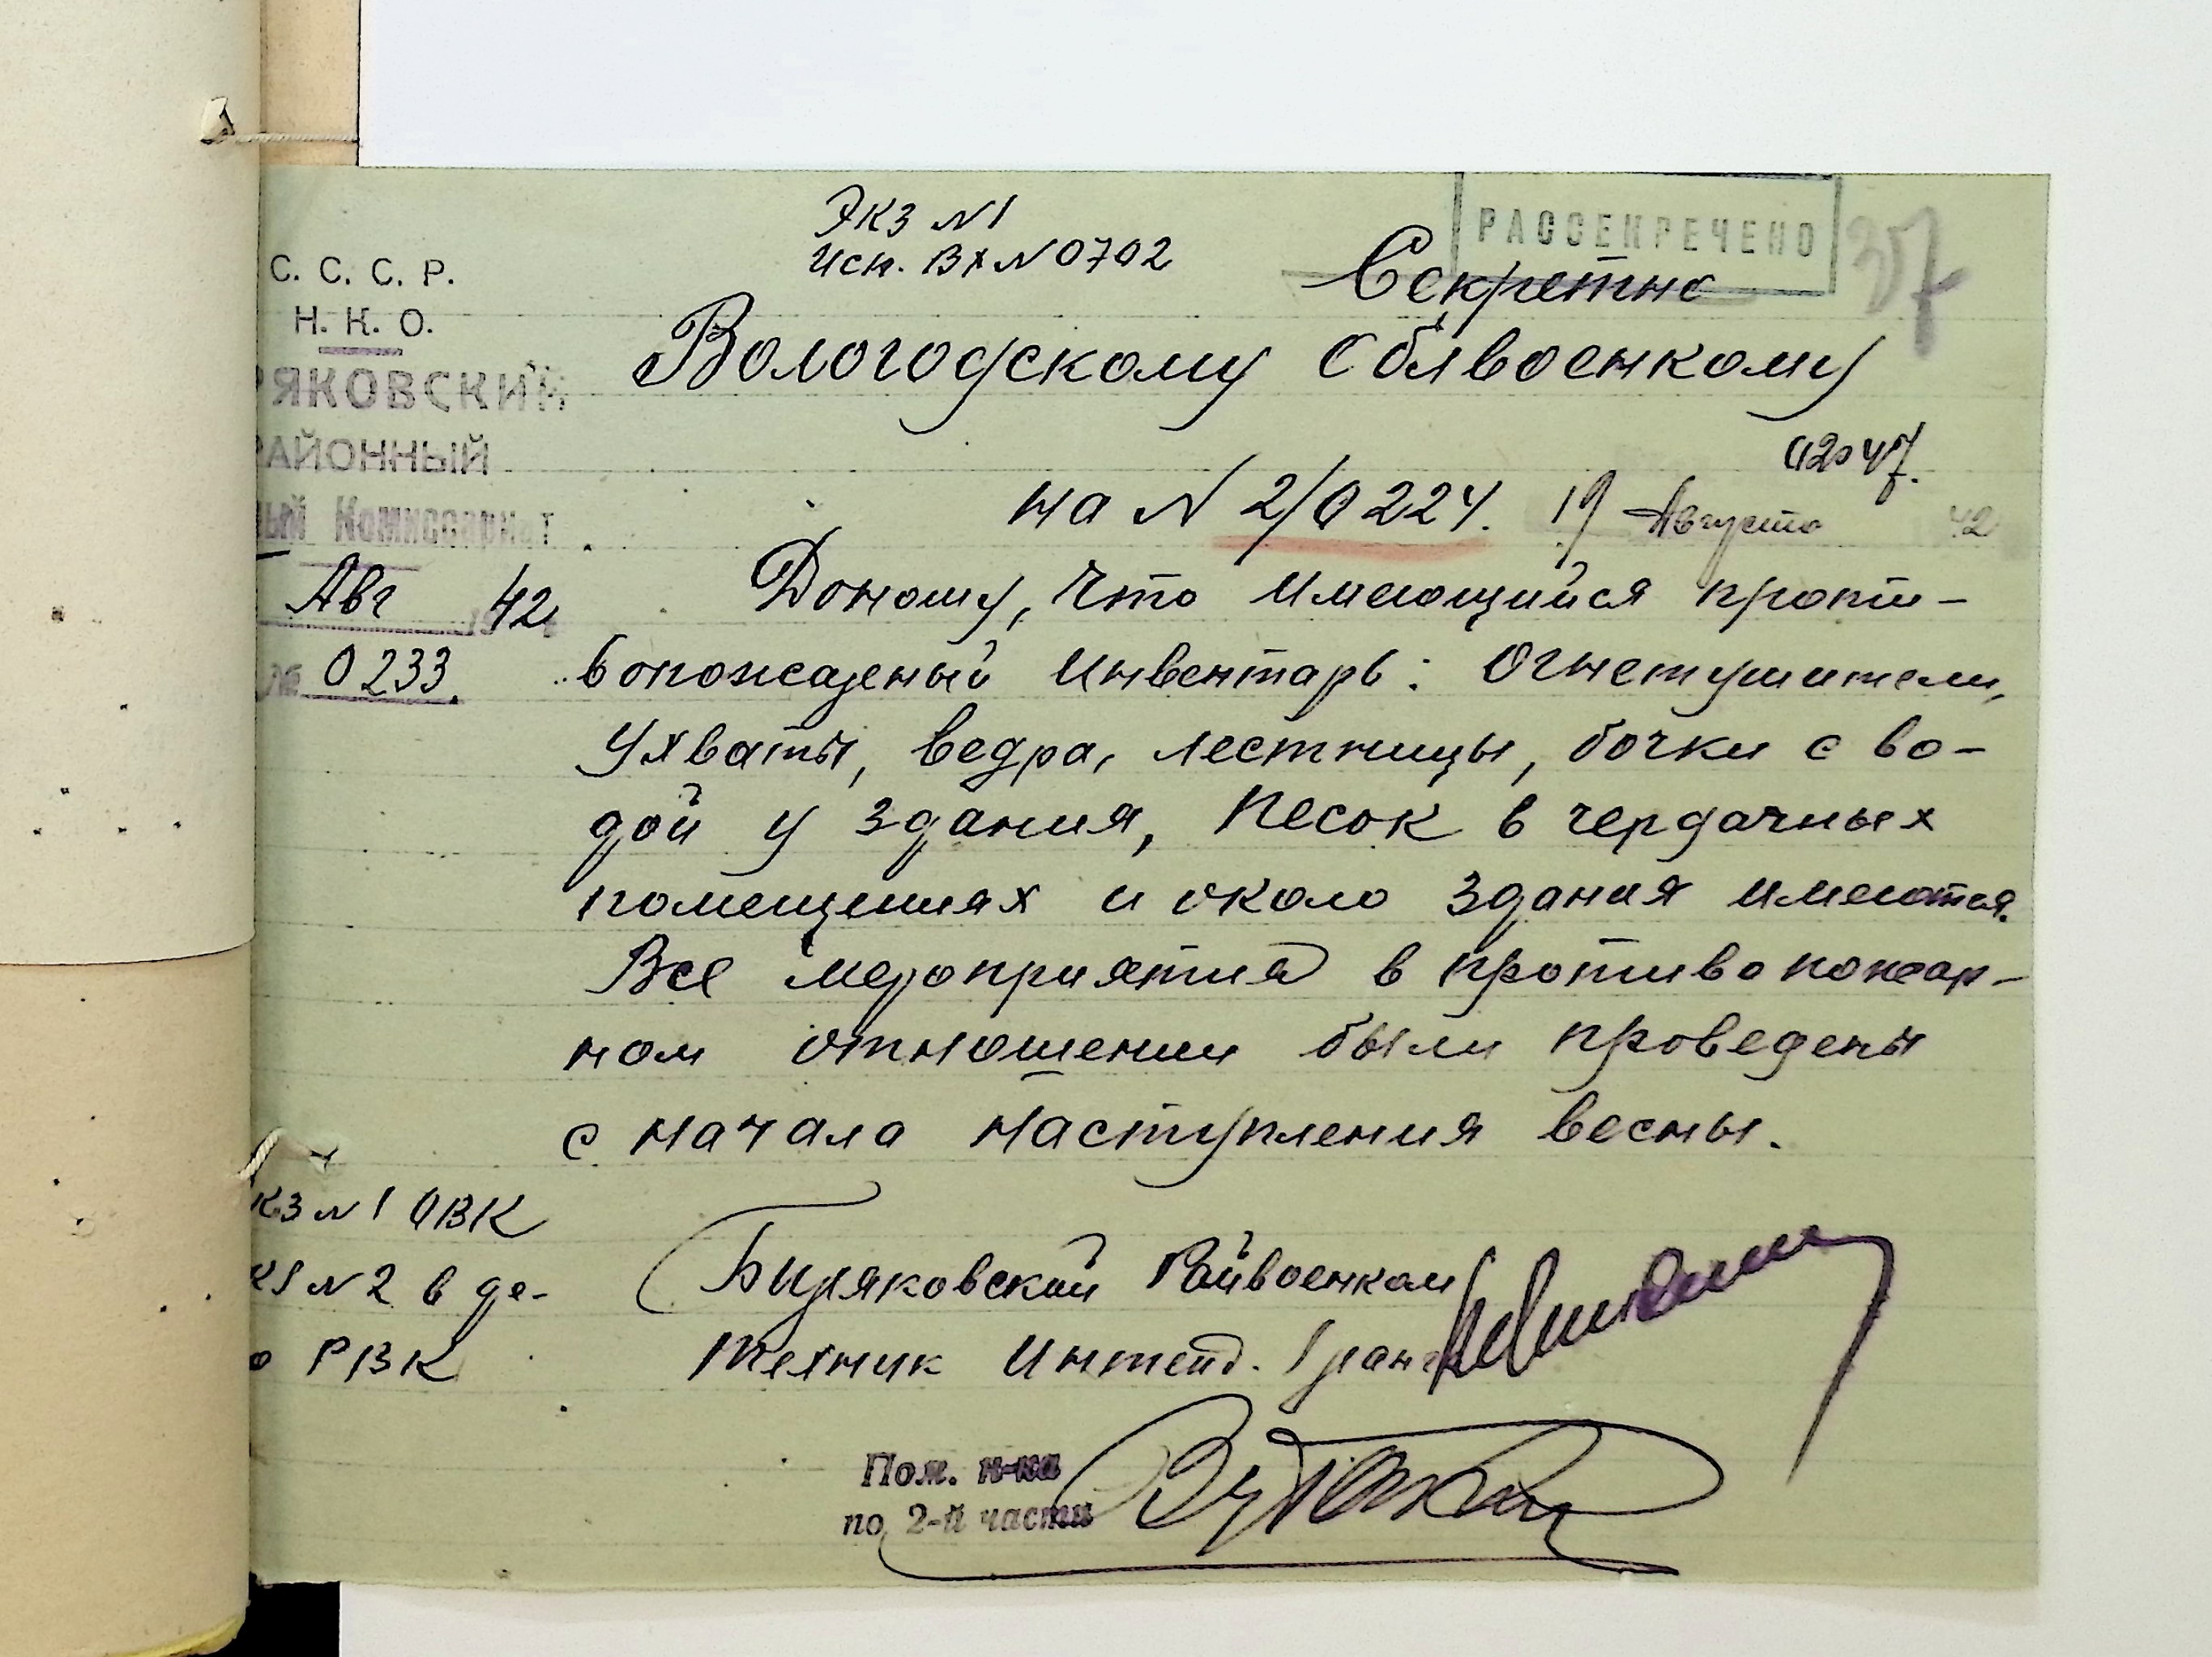 Экз N1
Исп. Вх N0702
РАССЕКРЕЧЕНО
37
Секретно
С. С. С. Р.
Н. К. О.
РЯКОВСКИЙ
РАЙОННЫЙ
ный Комиссариат
Авг 42
№ 0233.
Вологодскому Облвоенкому
02047.
на N 2/0224. 19 Августа 42
Доношу, что имеющийся проти-
вопожарный инвентарь: Огнетушители,
Ухваты, ведра, лестницы, бочки с во-
дой у здания, песок в чердачных
помещениях и около здания имеются.
Все мероприятия в противопожар-
ном отношении были проведены
с начала наступления весны.
кз N1 ОВК
кз N2 в де-
о РВК
Биряковский Райвоенком
Техник Интенд. 1 ранга
Пом. н-ка
по 2-й части